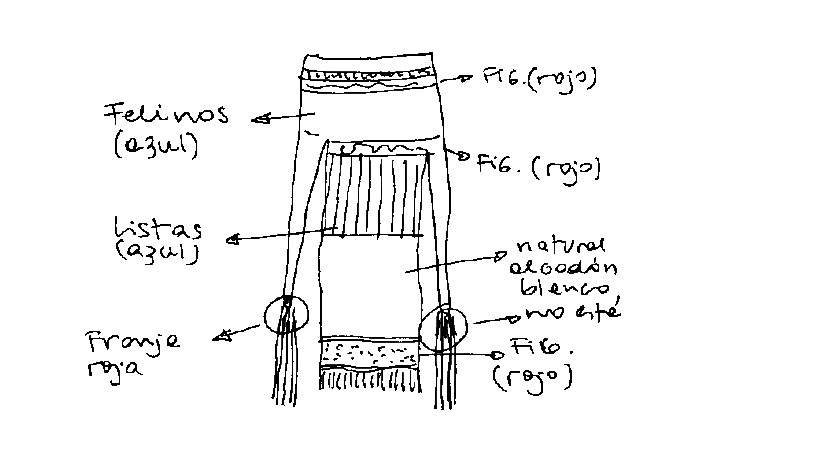 FIG. (rojo)
Felinos
(azul)
FIG. (rojo)
Listas
(azul)
natural
algodón
blanco
no esté
Franja
roja
FIG.
(rojo)